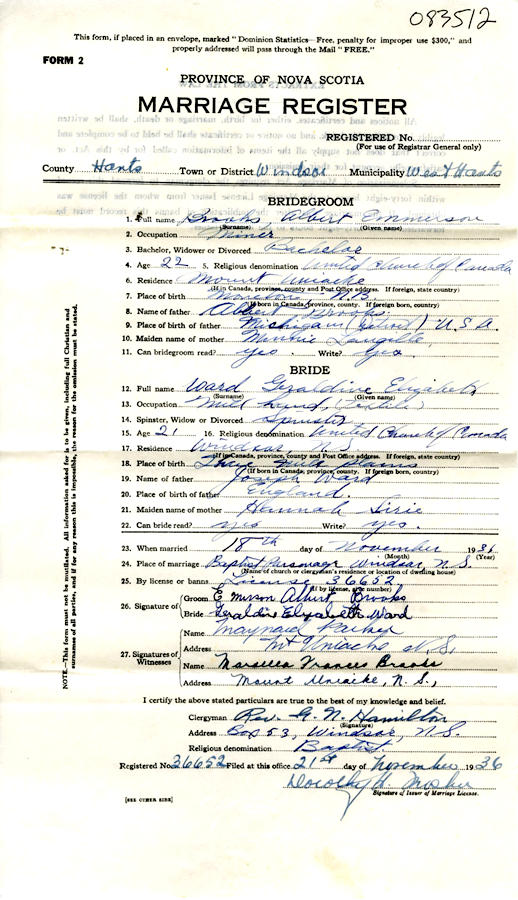 083512
This form, if placed in an envelope, marked "Dominion Statistics—Free, penalty for improper use $300," and
properly addressed will pass through the Mail "FREE."
FORM 2
PROVINCE OF NOVA SCOTIA
MARRIAGE REGISTER
REGISTERED No.
(For use of Registrar General only)
County Hants Town or District Windsor Municipality West Hants
BRIDEGROOM
1. Full name Brooks Albert Emmerson
(Surname) (Given name)
2. Occupation Miner
3. Bachelor, Widower or Divorced Bachelor
4. Age 22 5. Religious denomination United Church of Canada
6. Residence Mount Uniacke
(If in Canada, province, county and Post Office address. If foreign, state country)
7. Place of birth Moncton N.B.
(If born in Canada, province, county. If foreign born, country)
8. Name of father Albert Brooks
9. Place of birth of father Michigan (Detroit) U.S.A.
10. Maiden name of mother Minnie
11. Can bridegroom read? yes Write? yes
BRIDE
12. Full name Ward Geraldine Elizabeth
(Surname) (Given name)
13. Occupation Mill hand, (Textile)
14. Spinster, Widow or Divorced Spinster
15. Age 21 16. Religious denomination United Church of Canada
17. Residence Windsor
(If in Canada, province, county and Post Office address. If foreign, state country)
18. Place of birth Plains
(If born in Canada, province, county. If foreign born, country)
19. Name of father Joseph Ward
20. Place of birth of father England.
21. Maiden name of mother Hannah
22. Can bride read? yes Write? yes.
23. When married 18th day of November 1936
(Month) (Year)
24. Place of marriage Baptist Parsonage Windsor, N.S.
(Name of church or clergyman's residence or location of dwelling house)
25. By license or banns License 36652
(If by license, give number)
26. Signature of Groom Emerson Albert Brooks
Bride Geraldine Elizabeth Ward
27. Signatures of Witnesses
Name Maynard Parker
Address Mt Uniacke N.S.
Name Marsella Frances Brooks
Address Mount Uniacke, N.S.,
I certify the above stated particulars are true to the best of my knowledge and belief.
Clergyman Rev. G. N. Hamilton
(Signature)
Address Box 53, Windsor, N.S.
Religious denomination Baptist
Registered No. 36652 Filed at this office 21st day of November 1936
Dorothy H. Mosher
Signature of Issuer of Marriage License.
[SEE OTHER SIDE]
NOTE.—This form must not be mutilated. All information asked for is to be given, including full Christian and
surnames of all parties, and if for any reason this is impossible, the reason for the omission must be stated.